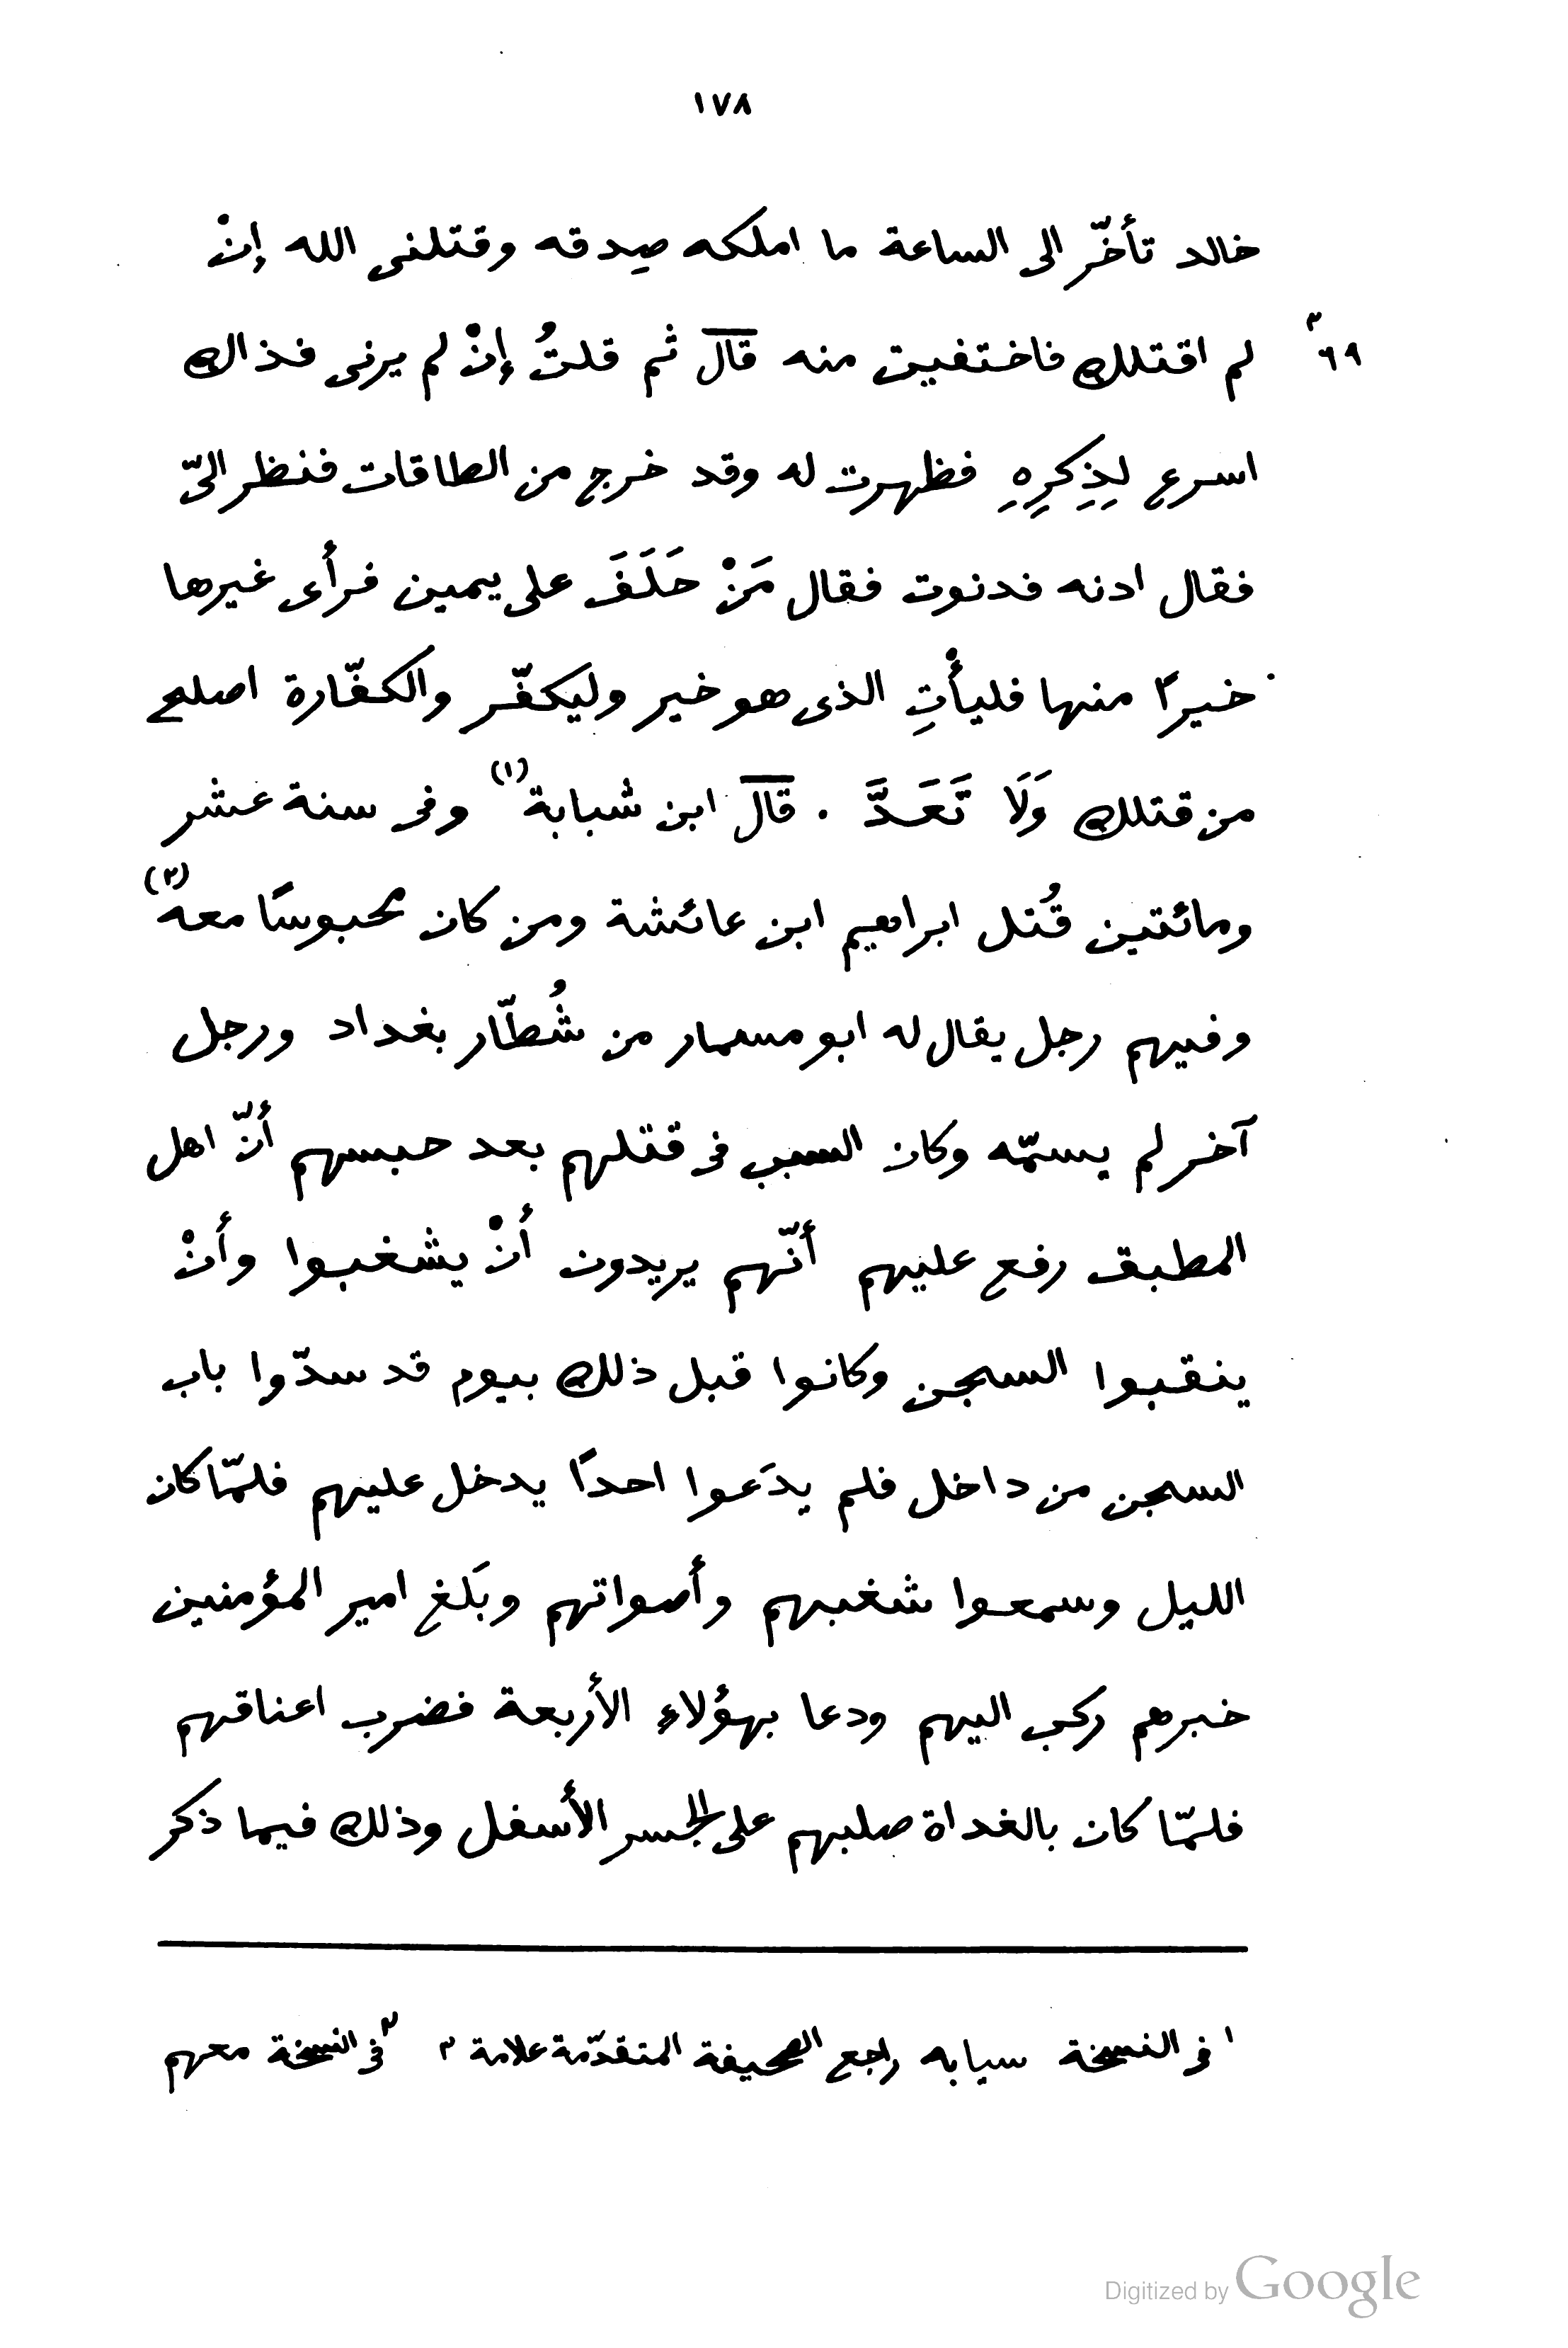 ١٧٨
خالد تأخّر الى الساعة ما املكه صِدقه وقتلنى الله إنْ
لم اقتلك فاختفيت منه قال ثم قلتُ إنْ لم يرنى فذاك
٦٩
اسرع لِذِكرِهِ فظهرت له وقد خرج من الطاقات فنظر الىّ
فقال ادنه فدنوت فقال مَنْ حَلَفَ على يمين فرأى غيرها
خيرًا منها فليأْتِ الذى هو خير وليكفّر والكفّارة اصلح
من قتلك وَلَا تَعَدَّ . قال ابن شبابة (١) وفى سنة عشر
ومائتين قُتل ابراهيم ابن عائشة ومن كان محبوسًا معه (٢)
وفيهم رجل يقال له ابو مسمار من شُطّار بغداد ورجل
آخر لم يسمّه وكان السبب فى قتلهم بعد حبسهم أنّ اهل
المطبق رفع عليهم أنّهم يريدون أنْ يشغبوا وأنْ
ينقبوا السجن وكانوا قبل ذلك بيوم قد سدّوا باب
السجن من داخل فلم يدَعوا احدًا يدخل عليهم فلمّا كان
الليل وسمعوا شغبهم وأصواتهم وبَلغ امير المؤمنين
خبرهم ركب اليهم ودعا بهؤلاء الأربعة فضرب اعناقهم
فلمّا كان بالغداة صلبهم على الجسر الأسفل وذلك فيما ذكر
١ فى النسخة سيابه راجع الصحيفة المتقدّمة علامة ٣ ٢ فى النسخة معهم
Digitized by Google